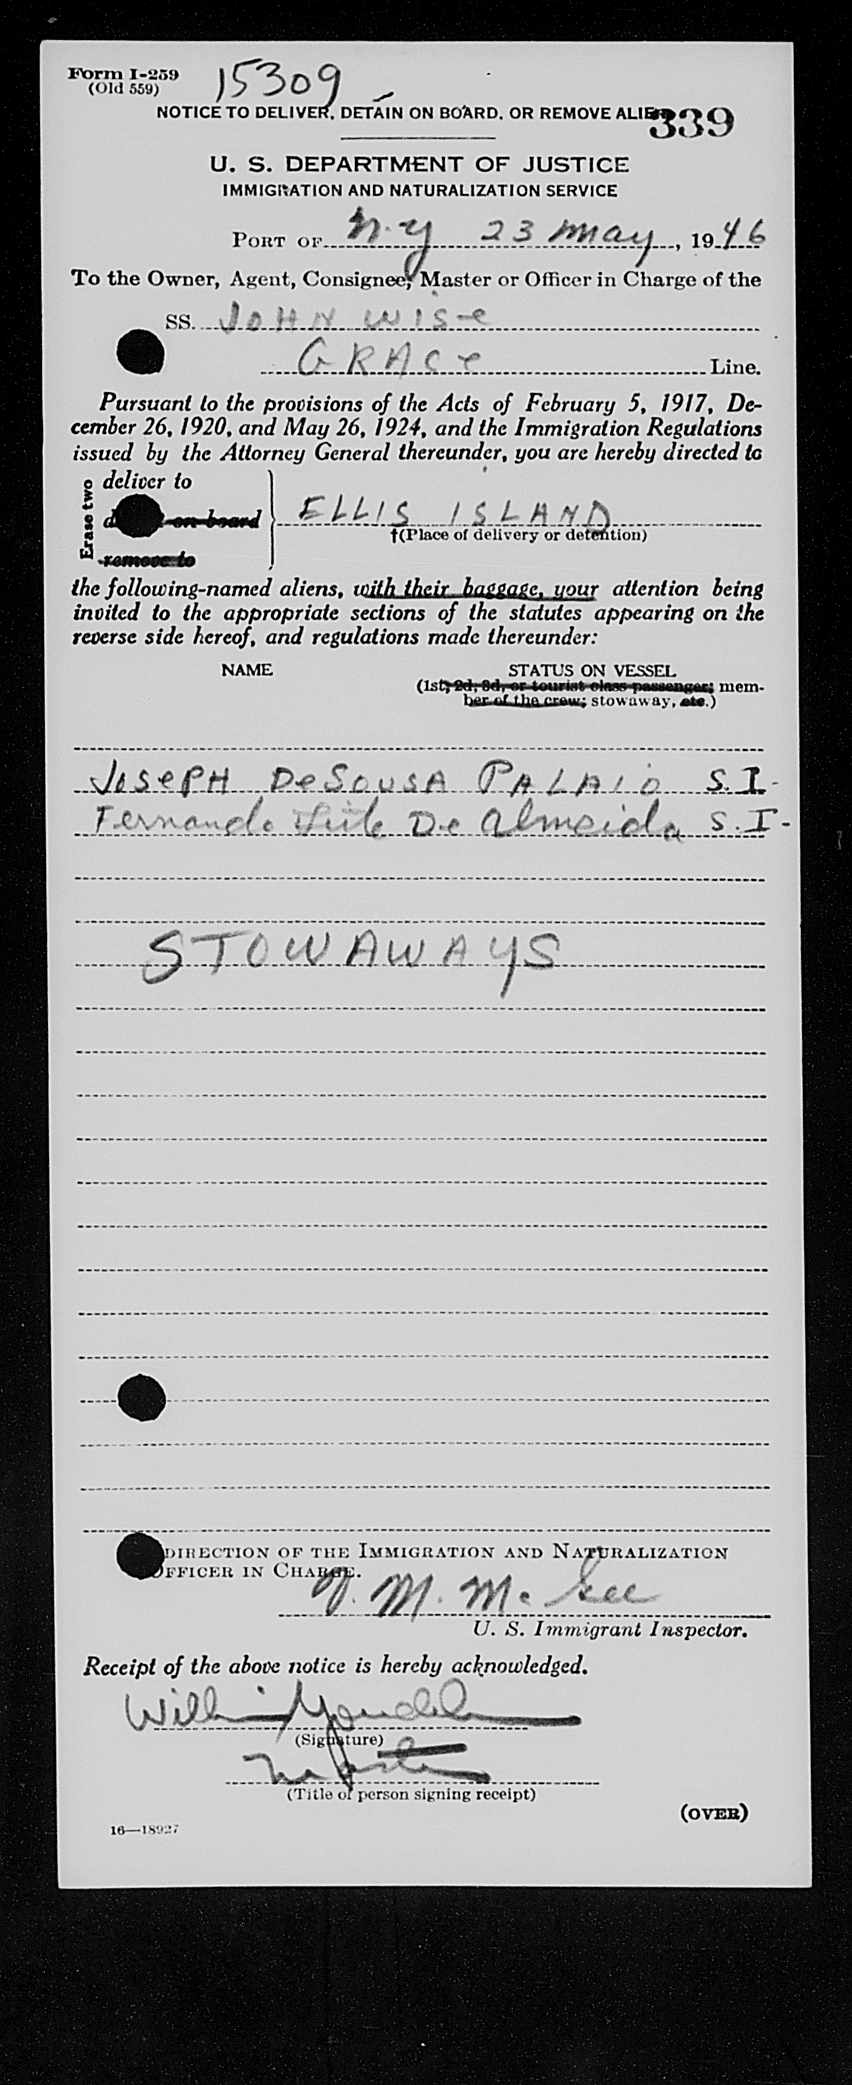 Form I-259
(Old 559)
15309
NOTICE TO DELIVER, DETAIN ON BOARD, OR REMOVE ALIE
339
U. S. DEPARTMENT OF JUSTICE
IMMIGRATION AND NATURALIZATION SERVICE
PORT OF N.Y 23 May, 1946
To the Owner, Agent, Consignee, Master or Officer in Charge of the
SS. JOHN WISe
GRACe Line.
Pursuant to the provisions of the Acts of February 5, 1917, De-
cember 26, 1920, and May 26, 1924, and the Immigration Regulations
issued by the Attorney General thereunder, you are hereby directed to
Erase two
deliver to
d on board
remove to
ELLIS ISLAND
†(Place of delivery or detention)
the following-named aliens, with their baggage, your attention being
invited to the appropriate sections of the statutes appearing on the
reverse side hereof, and regulations made thereunder:
NAME STATUS ON VESSEL
(1st, 2d, 3d, or tourist class passenger; mem-
ber of the crew; stowaway, etc.)
JOSePH DeSOUSA PALAIO S.I-
Fernando De Almeida S.I-
STOWAWAYS
DIRECTION OF THE IMMIGRATION AND NATURALIZATION
OFFICER IN CHARGE.
M. McGee
U. S. Immigrant Inspector.
Receipt of the above notice is hereby acknowledged.
(Signature)
Master
(Title of person signing receipt)
(OVER)
16—18927